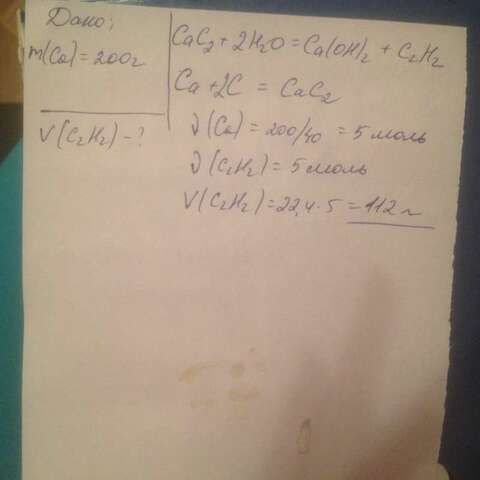 Дано:
m(Ca)=200г
V(C₂H₂)-?
CaC₂+2H₂O=Ca(OH)₂+C₂H₂
Ca+2C=CaC₂
ν(Ca)=200/40=5 моль
ν(C₂H₂)=5 моль
V(C₂H₂)=22,4·5=112 л